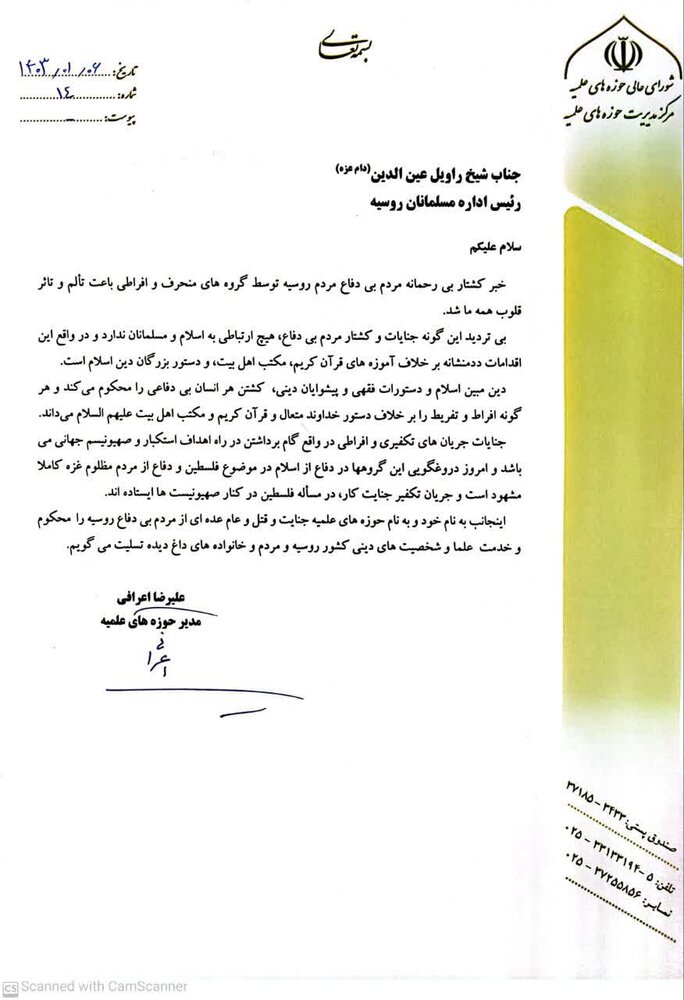 بسمه تعالی
شورای عالی حوزه های علمیه
مرکز مدیریت حوزه های علمیه
تاریخ: ۱۴۰۳/۰۱/۰۶
شماره: ۱۴
پیوست: ــ
جناب شیخ راویل عین الدین (دام عزه)
رئیس اداره مسلمانان روسیه
سلام علیکم
خبر کشتار بی رحمانه مردم بی دفاع مردم روسیه توسط گروه های منحرف و افراطی باعث تألم و تاثر
قلوب همه ما شد.
بی تردید این گونه جنایات و کشتار مردم بی دفاع، هیچ ارتباطی به اسلام و مسلمانان ندارد و در واقع این
اقدامات ددمنشانه بر خلاف آموزه های قرآن کریم، مکتب اهل بیت، و دستور بزرگان دین اسلام است.
دین مبین اسلام و دستورات فقهی و پیشوایان دینی، کشتن هر انسان بی دفاعی را محکوم می‌کند و هر
گونه افراط و تفریط را بر خلاف دستور خداوند متعال و قرآن کریم و مکتب اهل بیت علیهم السلام می‌داند.
جنایات جریان های تکفیری و افراطی در واقع گام برداشتن در راه اهداف استکبار و صهیونیسم جهانی می
باشد و امروز دروغگویی این گروهها در دفاع از اسلام در موضوع فلسطین و دفاع از مردم مظلوم غزه کاملا
مشهود است و جریان تکفیر جنایت کار، در مسأله فلسطین در کنار صهیونیست ها ایستاده اند.
اینجانب به نام خود و به نام حوزه های علمیه جنایت و قتل و عام عده ای از مردم بی دفاع روسیه را محکوم
و خدمت علما و شخصیت های دینی کشور روسیه و مردم و خانواده های داغ دیده تسلیت می گویم.
علیرضا اعرافی
مدیر حوزه های علمیه
اعرافی
صندوق پستی: ۳۴۳۳ - ۳۷۱۸۵
تلفن: ۵ - ۳۳۱۳۳۱۹۴ - ۰۲۵
نمابر: ۳۷۲۵۵۸۵۶ - ۰۲۵
CS Scanned with CamScanner